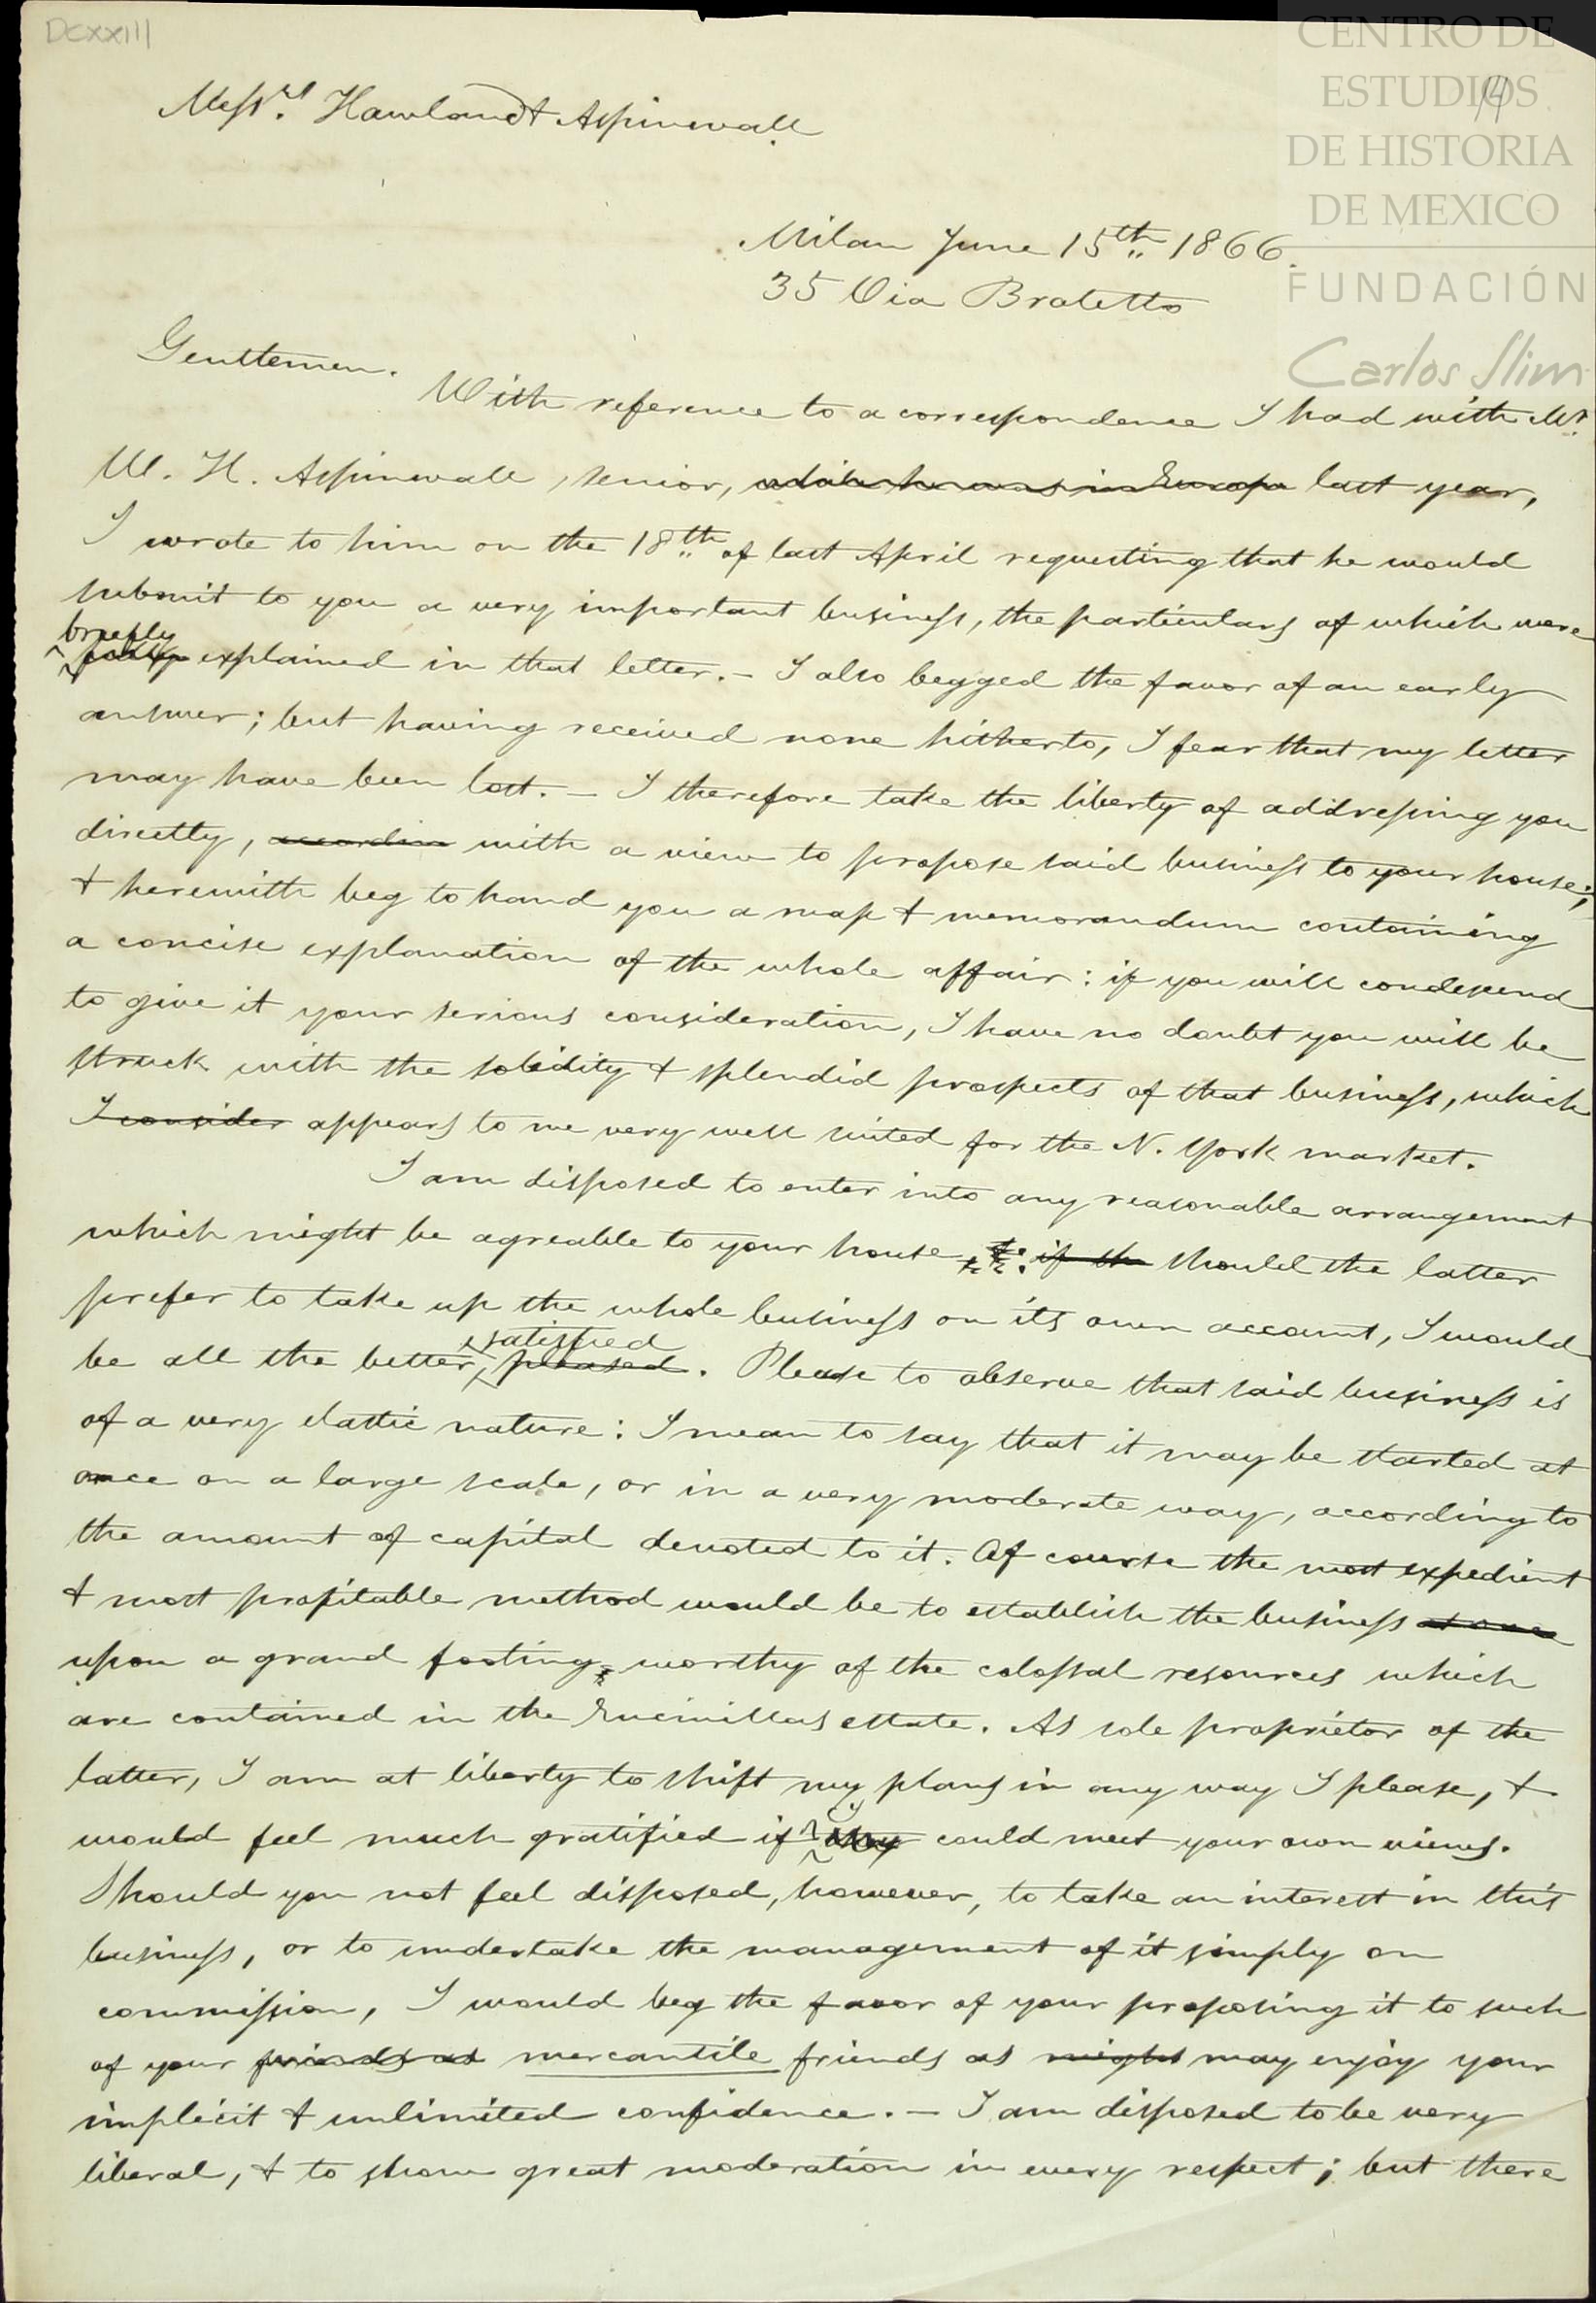 DCXXIII
CENTRO DE
ESTUDIOS
DE HISTORIA
DE MEXICO
FUNDACIÓN
Carlos Slim
14
Messrs. Howland & Aspinwall
Milan June 15th 1866.
35 Via Broletto
Gentlemen.
With reference to a correspondence I had with Mr.
W. H. Aspinwall, senior, while he was in Europe last year,
I wrote to him on the 18th of last April requesting that he would
submit to you a very important business, the particulars of which were
briefly
explained in that letter. – I also begged the favor of an early
answer; but having received none hitherto, I fear that my letter
may have been lost. – I therefore take the liberty of addressing you
directly, accordin with a view to propose said business to your house;
& herewith beg to hand you a map & memorandum containing
a concise explanation of the whole affair: if you will condescend
to give it your serious consideration, I have no doubt you will be
struck with the solidity & splendid prospects of that business, which
I consider appears to me very well suited for the N. York market.
I am disposed to enter into any reasonable arrangement
which might be agreable to your house, if sh should the latter
prefer to take up the whole business on its own account, I would
satisfied
be all the better, pleased. Please to observe that said business is
of a very elastic nature: I mean to say that it may be started at
once on a large scale, or in a very moderate way, according to
the amount of capital devoted to it. Of course the most expedient
& most profitable method would be to establish the business at once
upon a grand footing, worthy of the colossal resources which
are contained in the Encinillas estate. As sole proprietor of the
latter, I am at liberty to shift my plans in any way I please, &
would feel much gratified if they could meet your own views.
Should you not feel disposed, however, to take an interest in this
business, or to undertake the management of it simply on
commission, I would beg the favor of your proposing it to such
of your friends as mercantile friends as might may enjoy your
implicit & unlimited confidence. – I am disposed to be very
liberal, & to show great moderation in every respect; but there